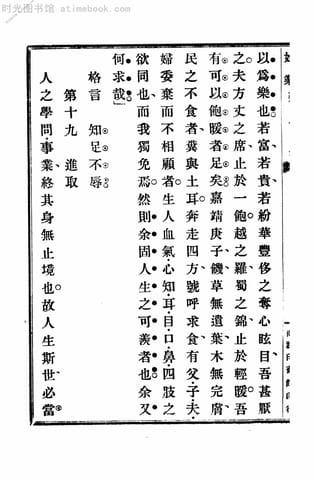 时光图书馆 - atimebook.com
以爲樂也若富若貴若紛華豐侈之奪心眩目吾甚厭
之夫方丈之席止於一飽越之羅蜀之錦止於輕暖吾
有可以飽暖者足矣嘉靖庚子饑草無遺葉木無完膚
民之不食者糞與土耳奔走四方號呼求食有父子夫
婦委棄而不相顧者生人血氣心知耳目口鼻四肢之
欲同也而我獨免焉然則余固人生之可羨者也余又
何求哉」
格言　知足不辱
第十九　進取
人之學問事業終其身無止境也故人生斯世必當